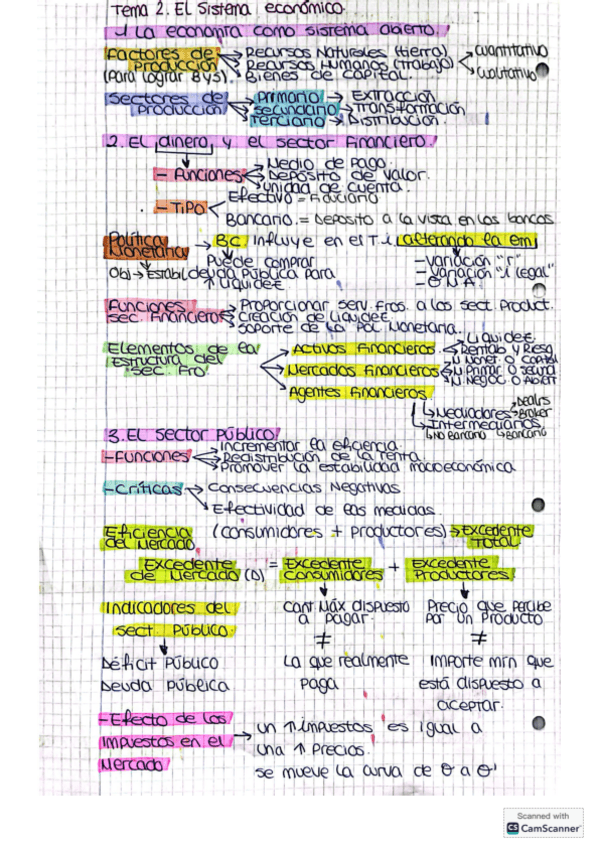 Tema 2. El Sistema económico.
1 La economía como sistema abierto.
Factores de Producción (para lograr ByS).
→ Recursos Naturales (tierra)
→ Recursos Humanos (trabajo)
→ Bienes de capital.
→ cuantitativo
→ cualitativo
Sectores de Producción
Primario → Extracción
Secundario → Transformación
Terciario → Distribución.
2. El dinero, y el sector financiero.
- Funciones
→ Medio de pago.
→ Depósito de valor.
→ unidad de cuenta.
- Tipo
Efectivo = Fiduciario
Bancario = Depósito a la vista en los bancos
Política Monetaria → BC. Influye en el T.i. alterando la em
Obj → Estabil
Puede comprar
deuda Pública para
↑ Liquidez
- Variación "r"
- Variación "i legal"
- O M A.
Funciones sec. Financiero
→ Proporcionar serv. fros. a los sect. Product.
→ Creación de liquidez.
→ Soporte de la Pol. Monetaria.
Elementos de la Estructura del "sec. fro"
Activos Financieros
Liquidez
Rentab y Riesg
Mercados Financieros
M. Moner. O Capital
M. Primar. O secund
M. Negoc. O Abiert
Agentes Financieros
Mediadores
Dealrs
Broker
Intermediarios
No Bancario
Bancario
3. El Sector Público
- Funciones
→ Incrementar la eficiencia.
→ Redistribución de la renta.
→ Promover la estabilidad macroeconómica
- Críticas
→ Consecuencias Negativas
→ Efectividad de las medidas.
Eficiencia del Mercado. (Consumidores + Productores) → Excedente Total.
Excedente de Mercado (D) = Excedente Consumidores + Excedente Productores
Indicadores del sect. Público.
Déficit Público
Deuda Pública
Cant Máx dispuesto a pagar.
≠
La que realmente paga
Precio que percibe por un Producto
≠
Importe mín que está dispuesto a aceptar.
- Efecto de los impuestos en el Mercado
→ un ↑ impuestos es igual a
una ↑ precios.
se mueve la curva de O a O'
Scanned with
CS CamScanner